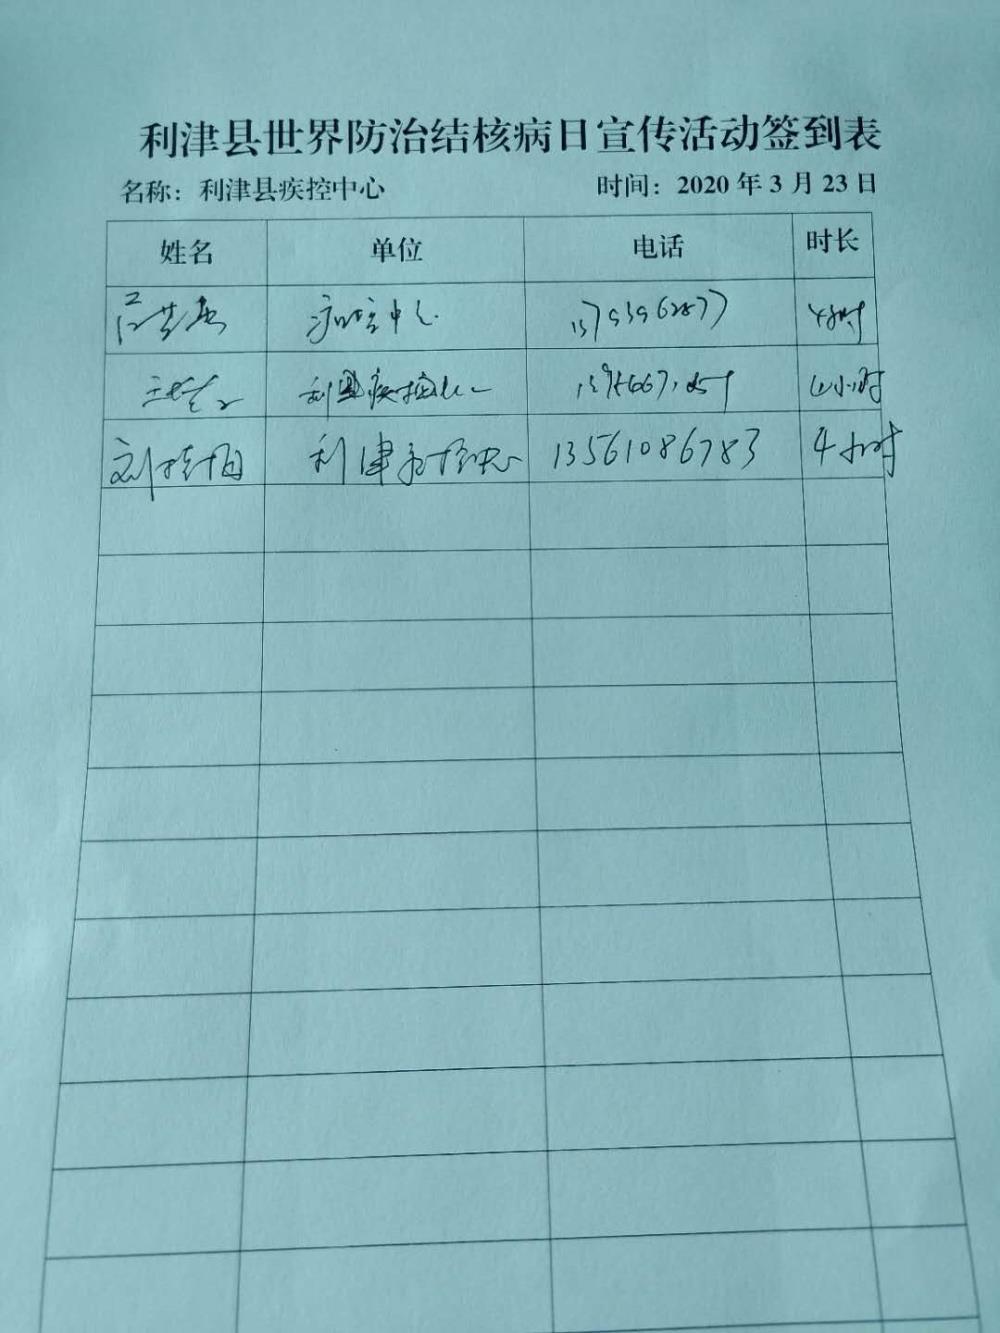 利津县世界防治结核病日宣传活动签到表
名称：利津县疾控中心 时间：2020 年 3 月 23 日
姓名 单位 电话 时长
疾控中心 13793962877 4小时
利津疾控中心 4小时
刘 利津疾控中心 13561086783 4小时